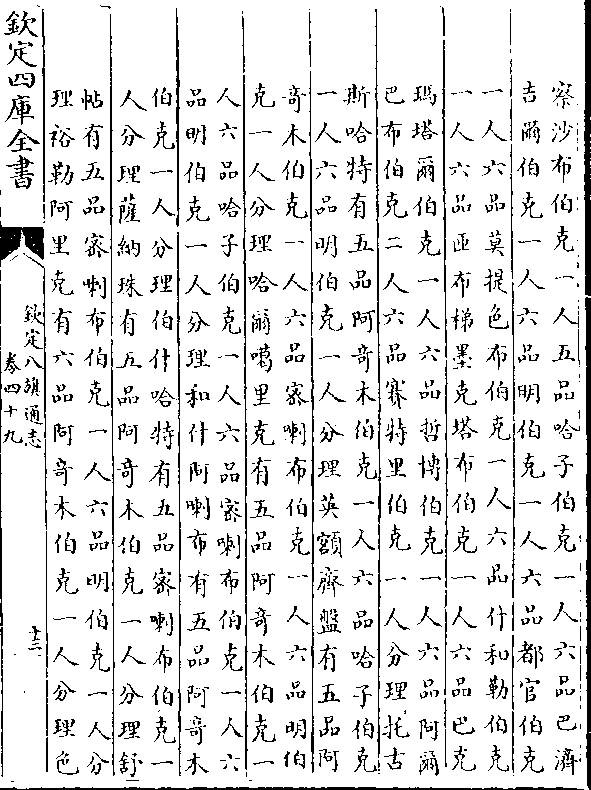 察沙布伯克一人五品哈子伯克一人六品巴濟
吉爾伯克一人六品明伯克一人六品都官伯克
一人六品莫提色布伯克一人六品什和勒伯克
一人六品匝布梯墨克塔布伯克一人六品巴克
瑪塔爾伯克一人六品哲博伯克一人六品阿爾
巴布伯克二人六品賽特里伯克一人分理托古
斯哈特有五品阿奇木伯克一人六品哈子伯克
一人六品明伯克一人分理英額齊盤有五品阿
奇木伯克一人六品宻喇布伯克一人六品明伯
克一人分理哈爾噶里克有五品阿奇木伯克一
人六品哈子伯克一人六品宻喇布伯克一人六
品明伯克一人分理和什阿喇布有五品阿奇木
伯克一人分理伯什哈特有五品宻喇布伯克一
人分理薩納珠有五品阿奇木伯克一人分理舒
帖有五品宻喇布伯克一人六品明伯克一人分
理裕勒阿里克有六品阿奇木伯克一人分理色
欽定四庫全書
欽定八旗通志
卷四十九
十二